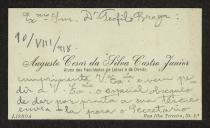 Exmo Snr. Dr. Teofilo Braga:
10/VIII/918
Augusto Cesar da Silva Castro Junior
Aluno das Faculdades de Letras e de Direito
cumprimenta V. Exa e vem pedir
a V. Exa o especial obsequio
de dar por pronta a sua tése e
envia-la para o Secretario
LISBOA
Rua Ilha Terceira,